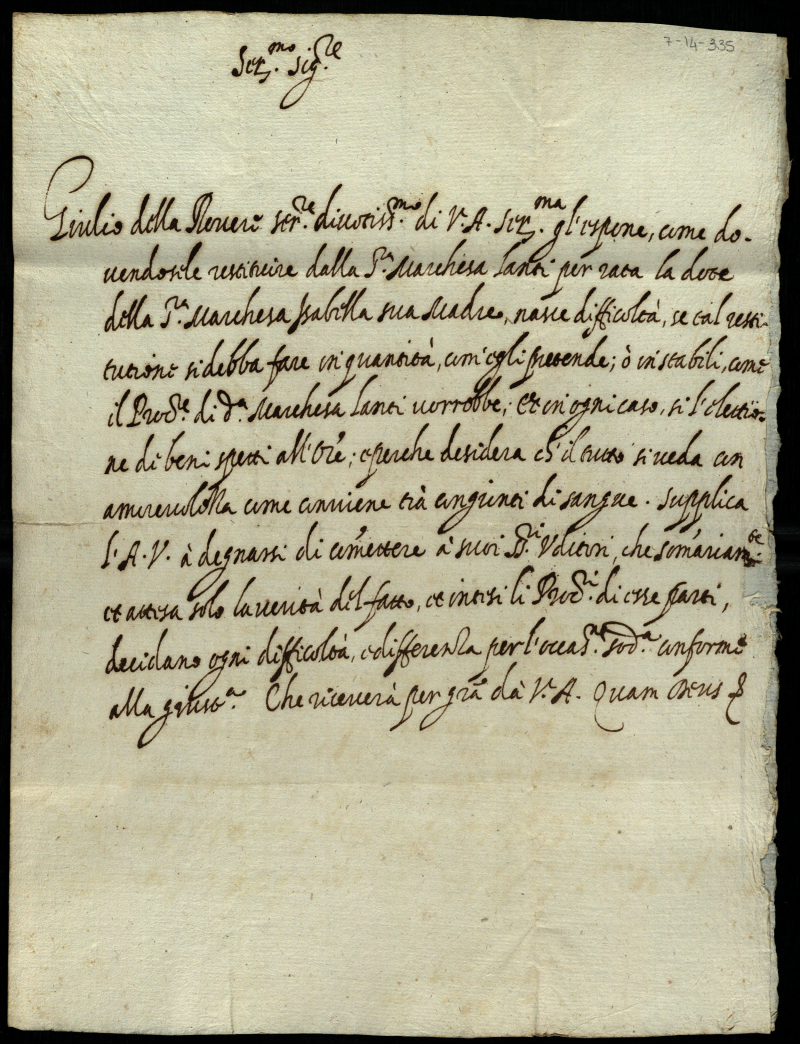 7-14-335
Ser.mo Sig.re
Giulio della Rovere ser.re divotiss.mo di V.A. Ser.ma gl'espone, come do-
vendosele restituire dalla S.ra Marchesa Lanti per rata la dote
della S.ra Marchesa Isabella sua Madre, nasce difficoltà, se tal resti-
tutione si debba fare in quantità, com'egli pretende; ò in stabili, come
il Proc.re di d.a Marchesa Lanti vorrebbe; et in ogni caso, si l'elettio-
ne di beni spetti all'Ore; e perche desidera ch'il tutto si veda con
amorevolezza come conviene trà congiunti di sangue. Supplica
l'A.V. à degnarsi di com'ettere à suoi S.ri Uditori, che som'ariam.te
et attesa solo la verità del fatto, et intesi li Proc.ri di esse parti,
decidano ogni difficoltà, e differenza per l'occas.ne sod.a conforme
alla giust.a Che riceverà per gra dà V.A. Quam Deus &